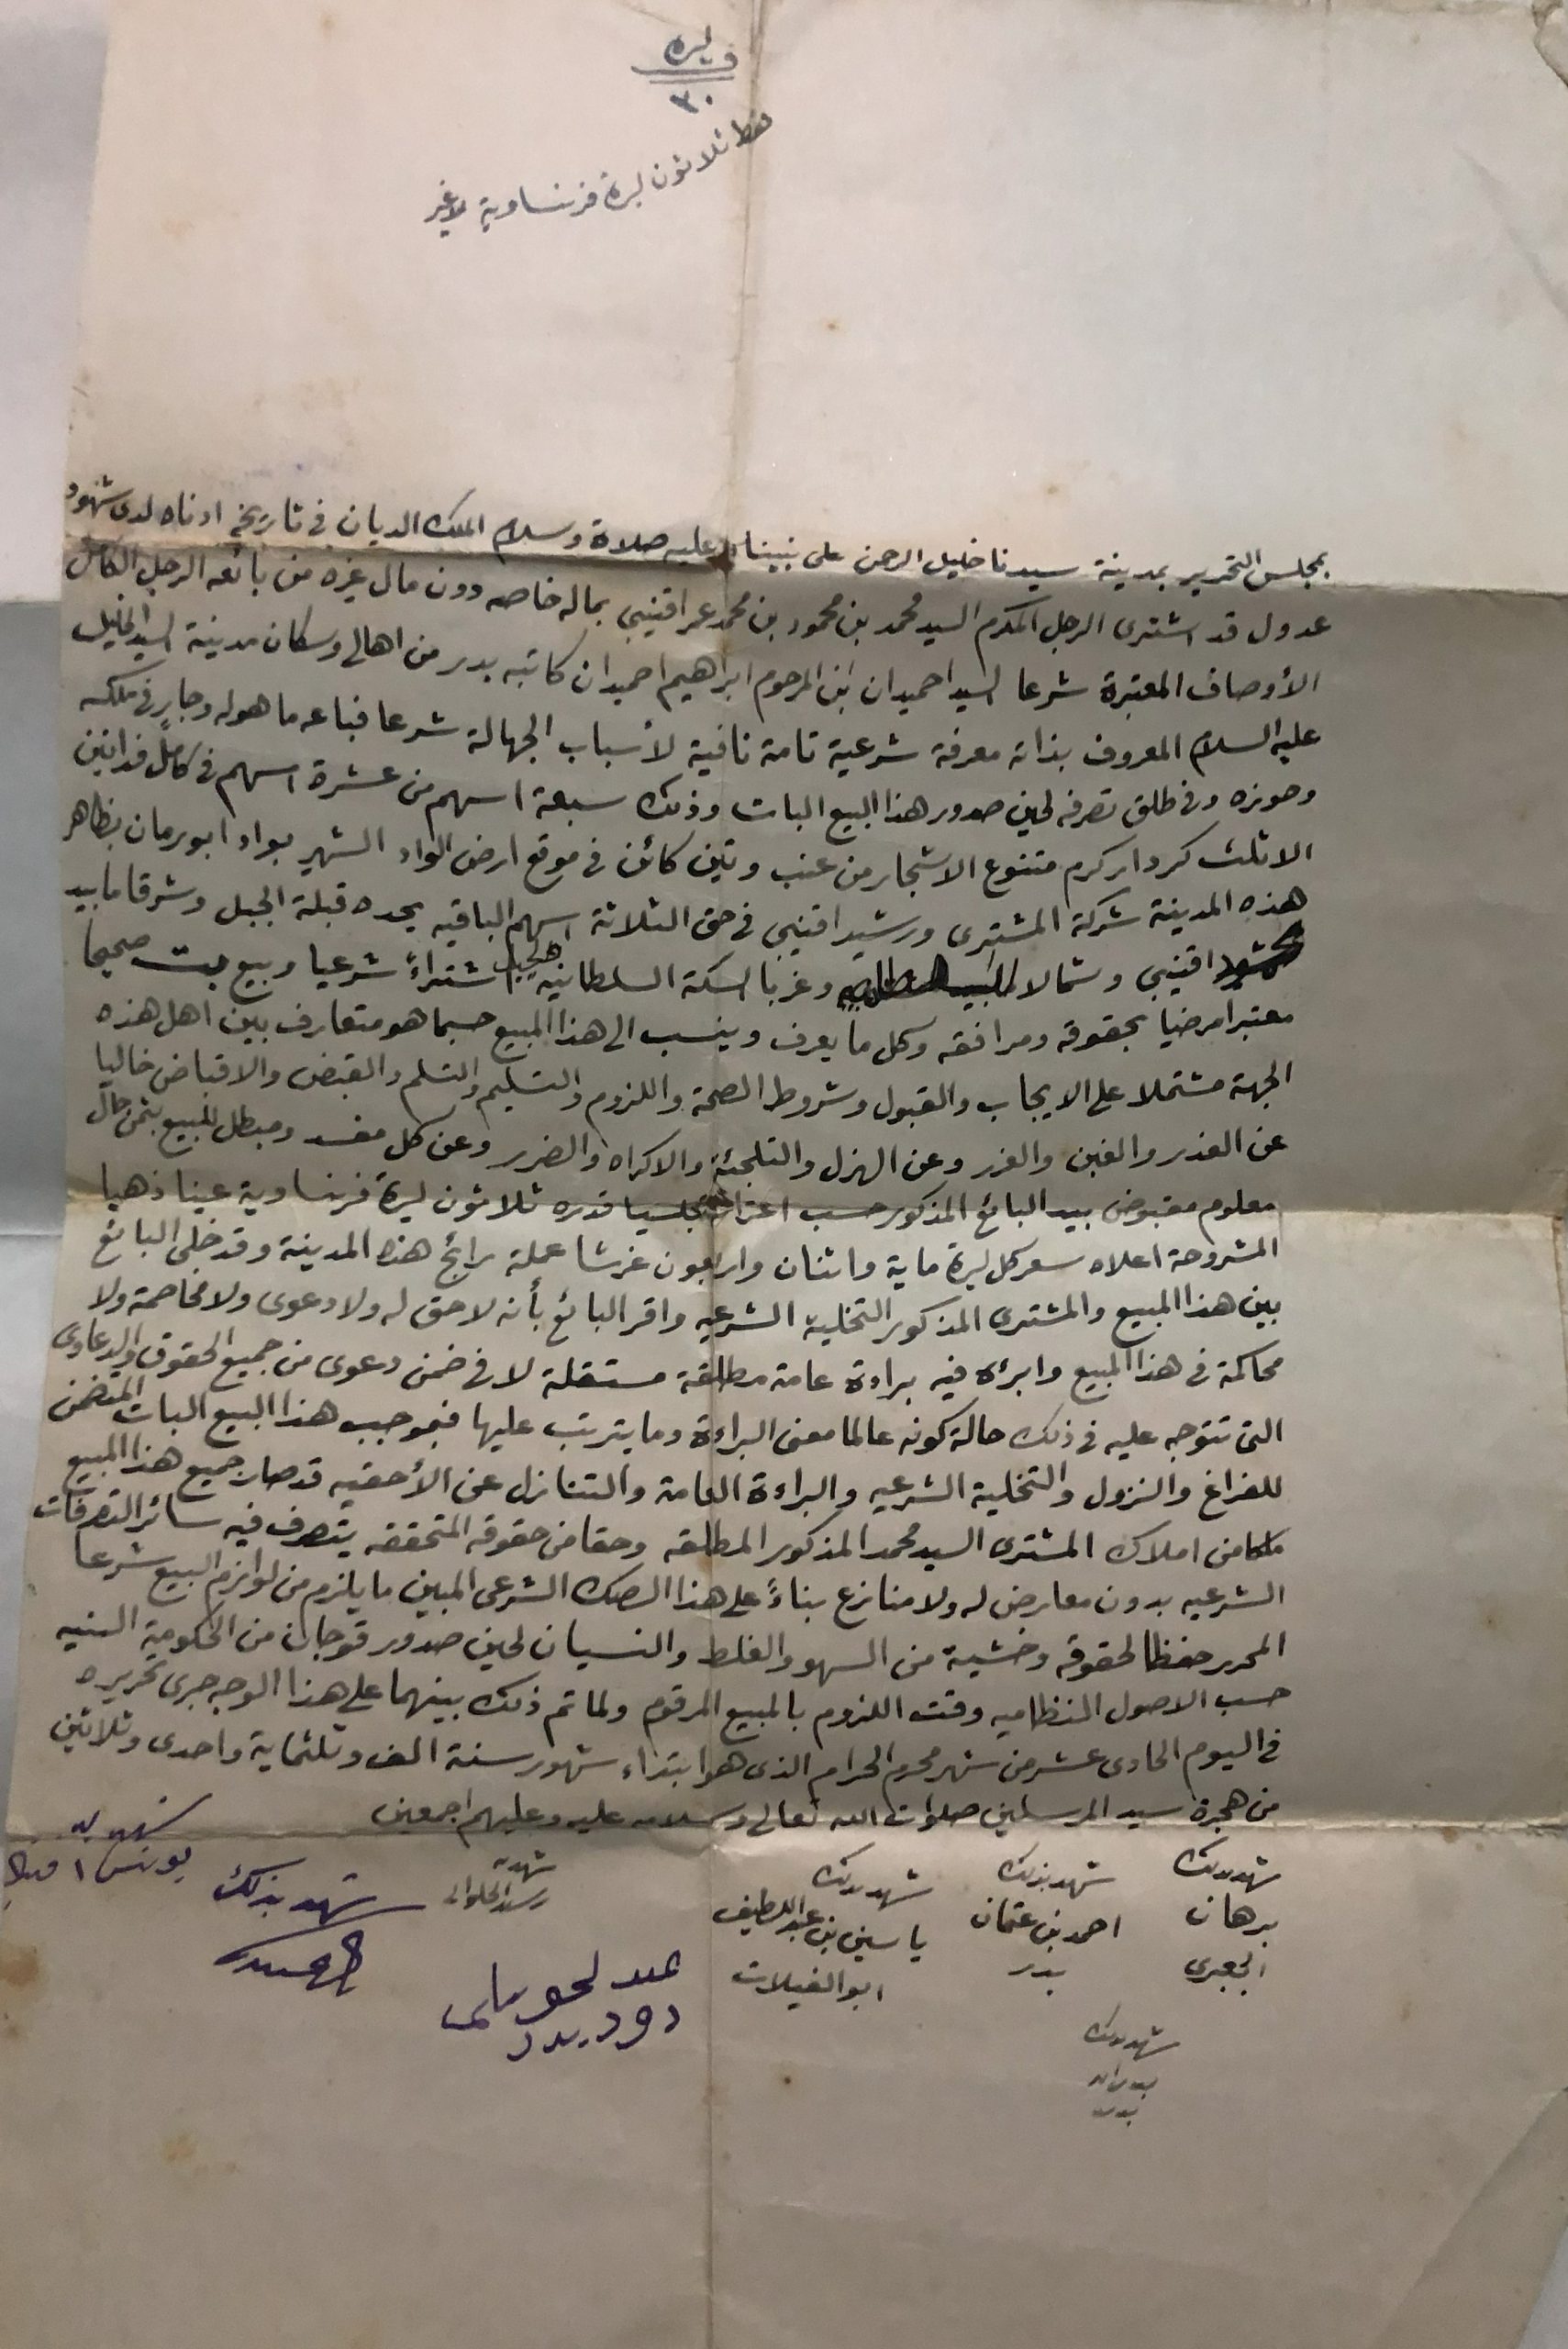 ليره
٣٠
فقط ثلاثون ليرة فرنساوية لا غير
بمجلس التحرير بمدينة سيدنا خليل الرحمن على نبينا وعليه صلاة وسلام الملك الديان في تاريخه ادناه لدى شهود
عدول قد اشترى الرجل المكرم السيد محمد بن محمود بن محمد عمر اقنيبي بماله خاصه دون مال غيره من بائعه الرجل الكامل
الأوصاف المعتبرة شرعا السيد احميدان ابن المرحوم ابراهيم احميدان كاتبه بدر من اهالي وسكان مدينة السيد الخليل
عليه السلام المعروف بذاته معرفة شرعية تامة نافية لأسباب الجهالة شرعا فباعه ما هو له وجار في ملكه
وحوزه وفي طلق تصرفه لحين صدور هذا البيع البات وذلك سبعة اسهم من عشرة اسهم في كامل فدانين
الا ثلث كردار كرم متنوع الاشجار من عنب وتين كائن في موقع ارض الواد الشهير بواد ابو رمان بظاهر
هذه المدينة شركة المشترى ورشيد اقنيبي في حق الثلاثة اسهم الباقيه يحده قبلة الجبل وشرقا ما بيد
اقنيبي وشمالا وغربا السكة السلطانيه الجبل اشتراءً شرعيا وبيع بت صحيحا
معتبرا مرضيا بحقوقه ومرافقه وكل ما يعرف وينسب الى هذا المبيع حسبما هو متعارف بين اهل هذه
الجهة مشتملا على الايجاب والقبول وشروط الصحة واللزوم والتسليم والتسلم والقبض والاقباض خاليا
عن الغدر والغبن والغرر وعن الهزل والتلجئة والاكراه والضرر وعن كل مفسد ومبطل للمبيع بثمن حال
معلوم مقبوض بيد البائع المذكور حسب اعترافه مجلسيا قدره ثلاثون ليرة فرنساوية عينا ذهبا
المشروحة اعلاه سعر كل ليرة ماية واثنان واربعون غرشا عملة رائج هذه المدينة وقد خلى البائع
بين هذا المبيع والمشترى المذكور التخلية الشرعيه واقر البائع بأنه لا حق له ولا دعوى ولا مخاصمة ولا
محاكمة في هذا المبيع وابرئه فيه براءة عامة مطلقة مستقلة لا في ضمن دعوى من جميع الحقوق والدعاوى
التى تتوجه عليه في ذلك حالة كونه عالما معنى البراءة وما يترتب عليها فبموجب هذا البيع البات المتضمن
للفراغ والنزول والتخلية الشرعيه والبراءة العامة والتنازل عن الأحقيه قد صار جميع هذا المبيع
ملكا من املاك المشترى السيد محمد المذكور المطلقه وحقا من حقوقه المتحققه يتصرف فيه سائر التصرفات
الشرعيه بدون معارض له ولا منازع بناءً على هذا الصك الشرعى المبين ما يلزم من لوازم البيع شرعا
المحرر حفظا لحقوقه وخشية من السهو والغلط والنسيان لحين صدور قوجان من الحكومة السنيه
حسب الاصول النظاميه وقت اللزوم بالمبيع المرقوم ولما تم ذلك بينهما على هذا الوجه جرى تحريره
في اليوم الحادى عشر من شهر محرم الحرام الذى هو ابتداء شهور سنة الف وثلثماية واحدى وثلاثين
من هجرة سيد المرسلين صلوات الله تعالى وسلامه عليه وعليهم اجمعين
شهد بذلك
برهان
الجعبرى
شهد بذلك
احمد بن عثمان
بدر
شهد بذلك
ياسين بن عبد اللطيف
ابو الفيلات
شهد به
شهد بذلك
شهد به
يونس
شهد بذلك
بدر